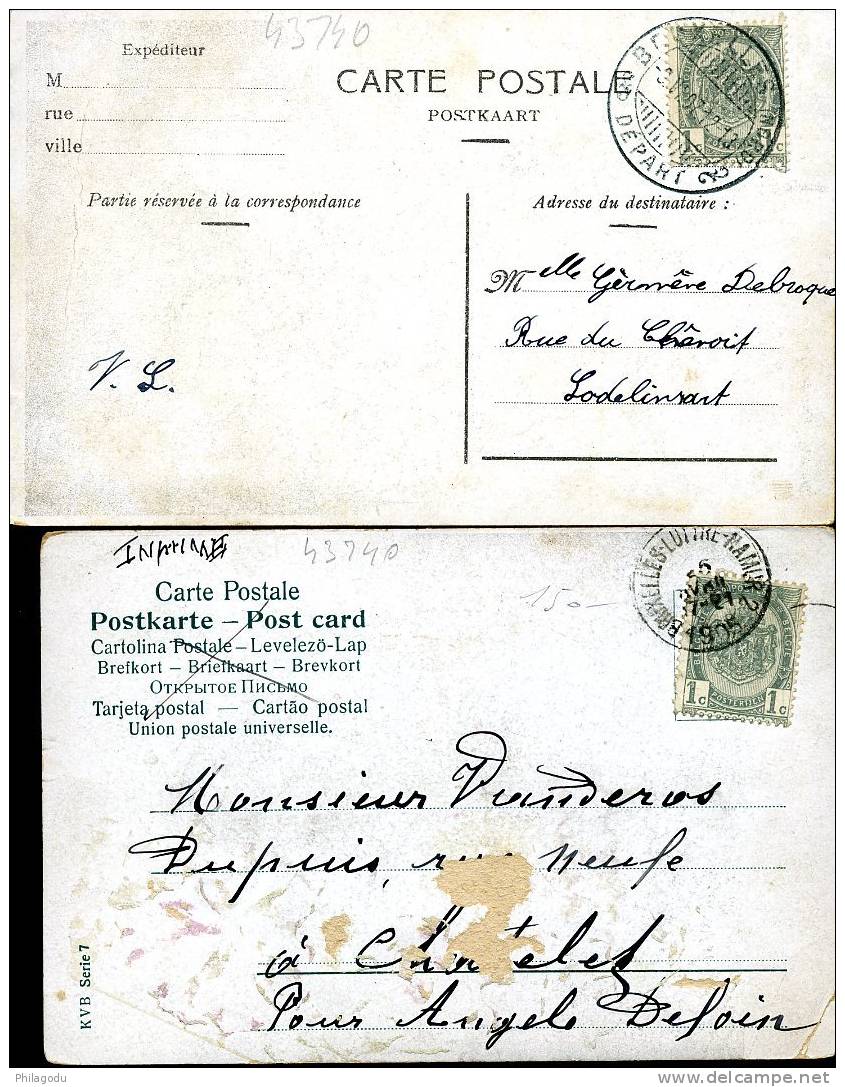 43740
Expéditeur
M
rue
ville
CARTE POSTALE
POSTKAART
DÉPART
1c
Partie réservée à la correspondance
Adresse du destinataire :
Melle Debroque
Rue du
Lodelinsart
V. L.
Imprimé
43740
150-
BRUXELLES-LUTTRE-NAMUR 2
1905
1c POSTERIJEN 1c
Carte Postale
Postkarte – Post card
Cartolina Postale – Levelezö-Lap
Brefkort – Briefkaart – Brevkort
Открытое Письмо
Tarjeta postal — Cartão postal
Union postale universelle.
Monsieur
Dupuis, rue Neufe
à Chatelet
Pour Angele Defoin
KVB Serie 7
Philagodu
delcampe.net